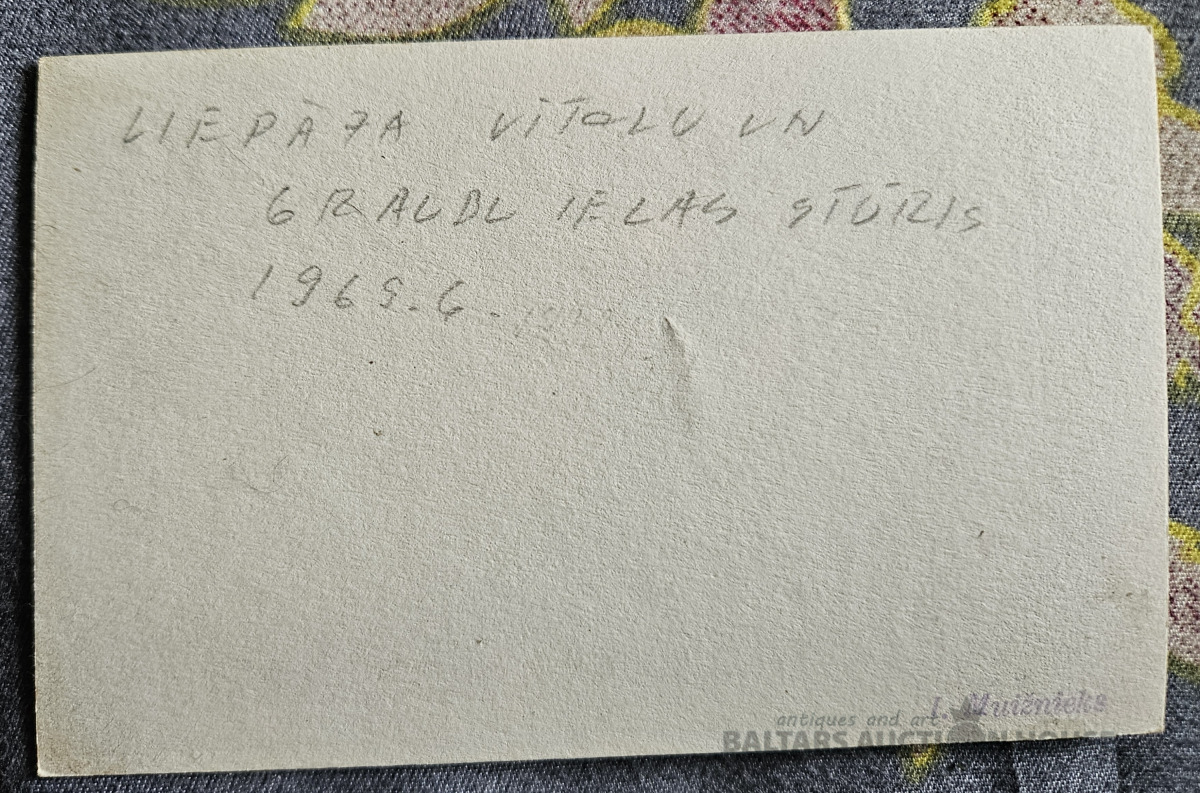 LIEPĀJA VĪTOLU UN
GRAUDU IELAS STŪRIS
1965.6.
I. Muižnieks
antiques and art
BALTARS AUCTION HOUSE